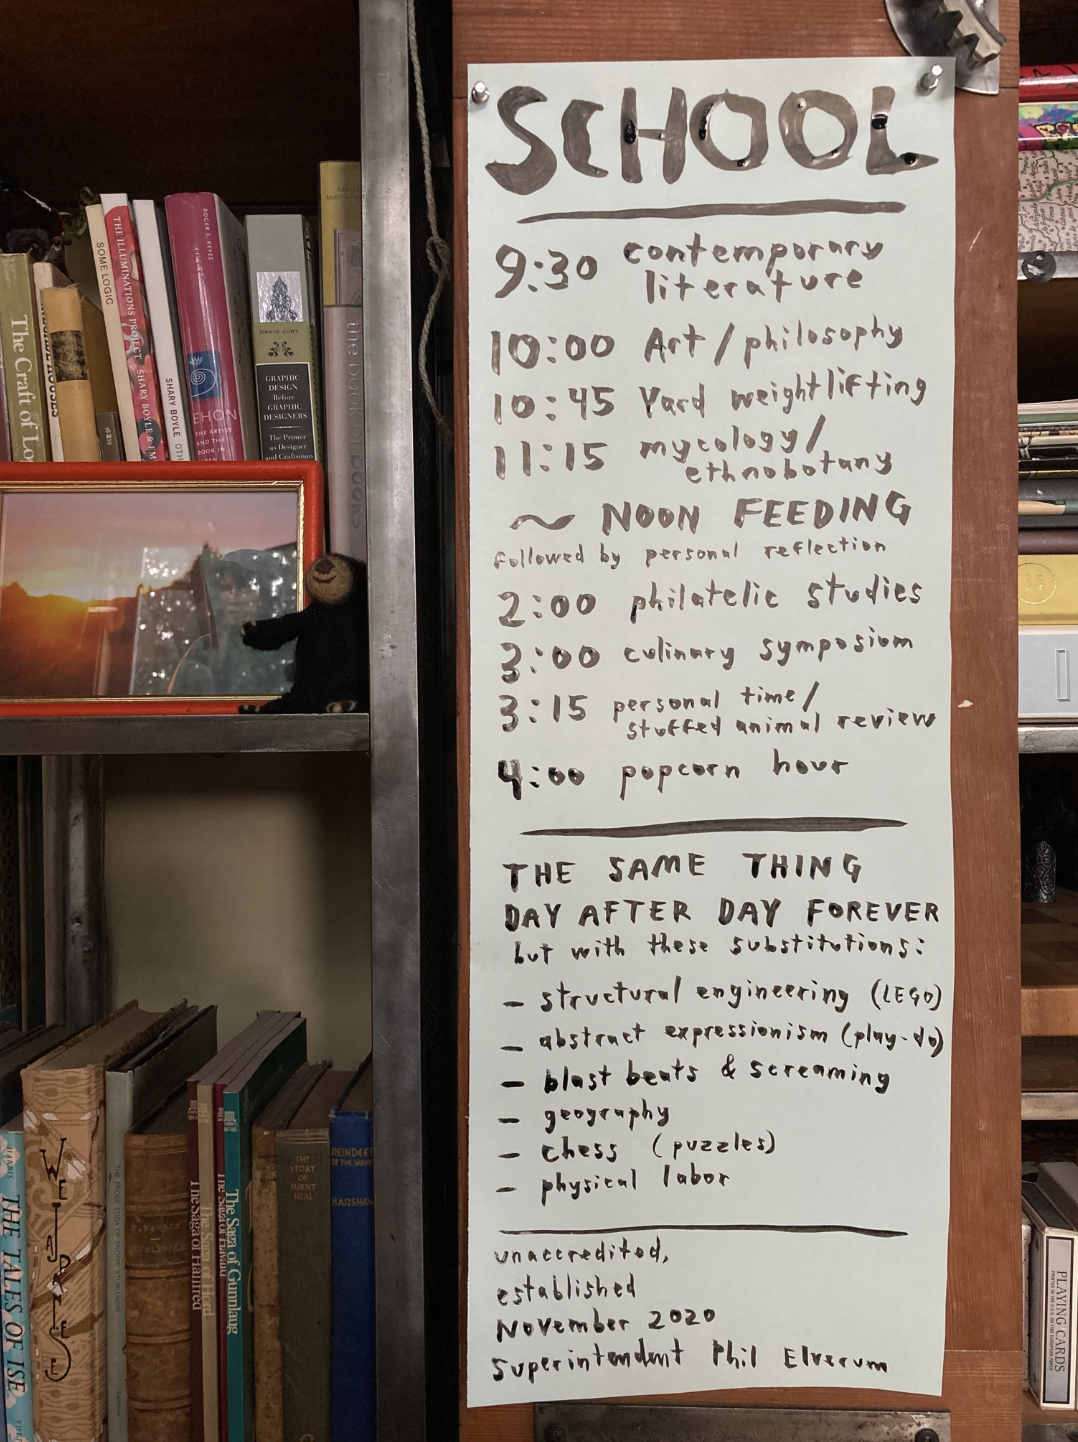 SCHOOL
9:30 contemporary
literature
10:00 Art/philosophy
10:45 Yard weightlifting
11:15 mycology/
ethnobotany
~ NOON FEEDING
followed by personal reflection
2:00 philatelic studies
3:00 culinary symposium
3:15 personal time/
stuffed animal review
4:00 popcorn hour
THE SAME THING
DAY AFTER DAY FOREVER
but with these substitutions:
- structural engineering (LEGO)
- abstract expressionism (play-do)
- blast beats & screaming
- geography
- chess (puzzles)
- physical labor
unaccredited,
established
November 2020
Superintendent Phil Elverum
The Craft of
SOME LOGIC
THE ILLUMINATIONS PROJECT SHARY BOYLE &
SHARY BOYLE
ROGER S. KEYES
EHON
THE ARTIST
AND THE
BOOK IN
DAVID JURY
GRAPHIC
DESIGN
Before
GRAPHIC
DESIGNERS
The Printer
as Designer
and Craftsman
the book on books
THE TALES OF ISE
WE JAPANESE
The Saga of Gunnlaug
THE
STORY
OF
BURNT
NJAL
REINDEER
OF THE WAVE
HARSHAW
PLAYING CARDS